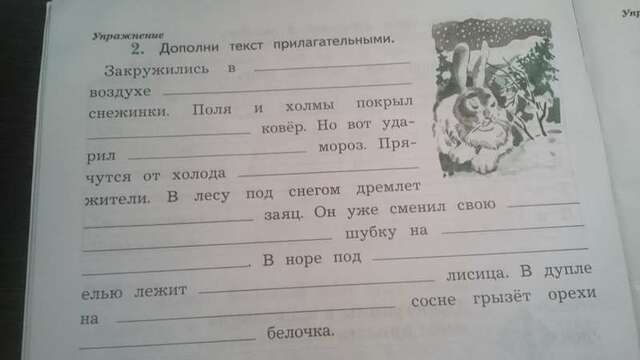 Упражнение
2. Дополни текст прилагательными.
Закружились в
воздухе
снежинки. Поля и холмы покрыл
ковёр. Но вот уда-
рил мороз. Пря-
чутся от холода
жители. В лесу под снегом дремлет
заяц. Он уже сменил свою
шубку на
. В норе под
елью лежит лисица. В дупле
на сосне грызёт орехи
белочка.